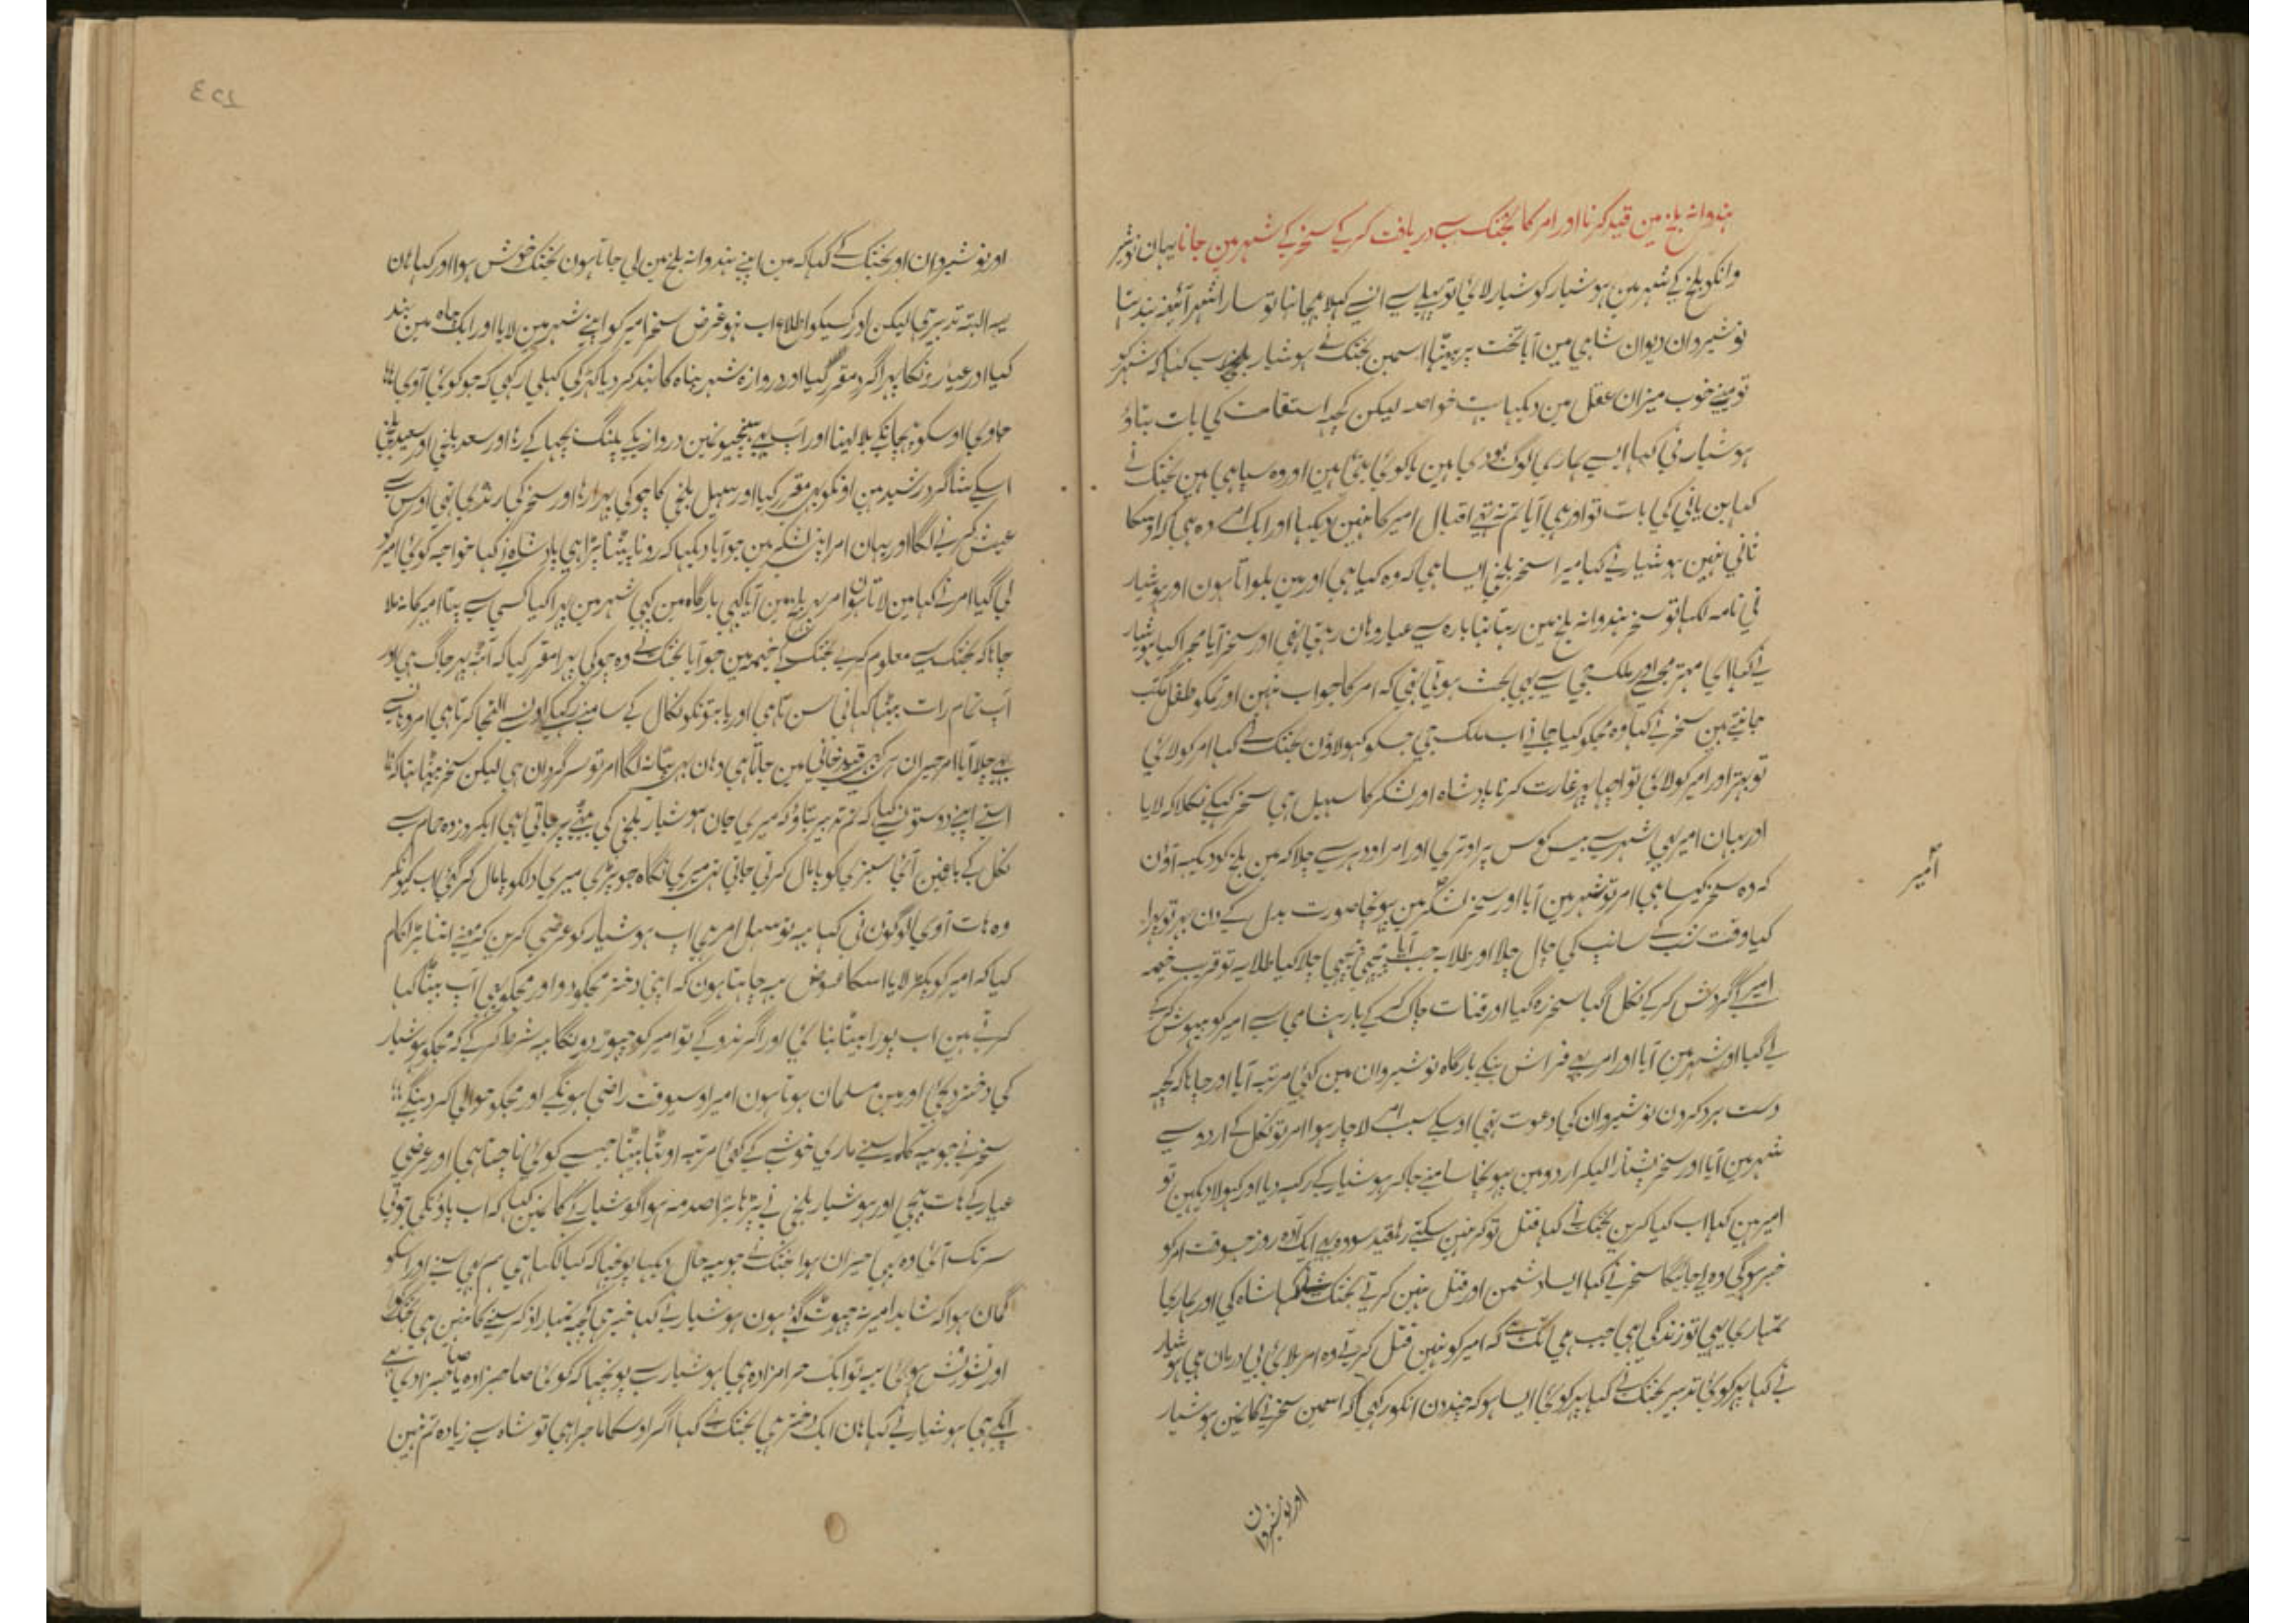 ہندوانہ بلخ مین قید کرنا اور امر کا بختک سے دریافت کرکے سنجر کے شہر مین جانا یہان نوشیر
وانکو بلخ کے شہر مین ہوشیار کو شیار لائی تو پہلے سے انسے کہلا بھیجا تھا تو سارا شہر آئینہ بند تھا
نوشیروان دیوان شاہی مین آیا تخت پر بیٹھا اسمین بختک نے ہوشیار بلخی سے کہا کہ شہر کو
تو مینے خوب میزان عقل مین دیکھا ہے خواصہ لیکن کچھ استقامت کی بات بتاؤ
ہوشیار نی کہا ایسے ہماری لوگ ہین یا کوئی اور وہ سپاہی ہین بختک نے
کہا بن پانی کی بات تو اور ہی آیا تم نے اقبال امیر کا نہین دیکھا اور ایک امر وہ ہی کہ اوسکا
ثانی نہین ہوشیار نے کہا میرا سنجر بلخی ایسا ہی کہ وہ کیا ہی اور مین بلواتا ہون اور ہوشیار
نی نامہ لکھا تو سنجر ہندوانہ بلخ مین رہتا تھا بارہ سے عیار وہان رہتی تھی اور سنجر آیا مجرا کیا ہوشیار
نے کہا ای مہتر مجھے اور ملک جی سے یہی بحث ہوتی تھی کہ امر کا جواب نہین اور تمکو طفل مکتب
جانتے ہین سنجر نے کہا وہ مجکو کیا جانے اب ملک جی جسکو کہو لاؤن بختک نے کہا امر کو لائی
تو بہتر اور امیر کو لائی تو اچھا پھر غارت کرنا بادشاہ اور لشکر کا سہیل ہی سنجر کہکے نکلا کہ لایا
اور یہان امیر بھی شہر سے بیس کوس پر اوتری اور امر اودہر سے چلا کہ مین بلخ کو دیکھ آؤن
امیر
کہ وہ سنجر کیسا ہی امر تو شہر مین آیا اور سنجر لشکر مین پہونچا صورت بدل کے دن بھر تو پھرا
کیا وقت شب کے سانپ کی چال چلا اور طلایہ جب آیا پیچھی پیچھی چلا کیا طلایہ تو قریب خیمہ
امیر کے گردش کرکے نکل گیا سنجر رہ گیا اور قنات چاک کرکے بارہشاہی سے امیر کو بیہوش کرکے
لے گیا اور شہر مین آیا اور امر بھی فراش بنکے بارگاہ نوشیروان مین کئی مرتبہ آیا اور چاہا کہ کچھ
دست برد کرون نوشیروان کی دعوت تھی اوسکے سبب سے لاچار ہوا امر تو نکل کے اردو سے
شہر مین آیا اور سنجر پشتارا لیکر اردو مین پہونچا سامنے جاکر ہوشیار کے رکھ دیا اور کہولا دیکھین تو
امیر ہین کہا اب کیا کرین بختک نے کہا قتل تو کر نہین سکتے رہا قید سو وہ بھی ایک آدہ روز جسوقت امر کو
خبر ہوگی وہ لے جائیگا سنجر نے کہا ایسا دشمن اور قتل نہین کرتے بختک نے کہا شاہ کی اور ہماری
تمہاری یہی تو زندگی ہی جب ہی تک ہے کہ امیر کو نہین قتل کرتے وہ امر بلائی بی درمان ہی ہوشیار
نے کہا پھر کوئی تدبیر بختک نے کہا پھر کوئی ایسا ہو کہ چند دن انکو رکھی کہ اسمین سنجر نے کا نمین ہوشیار
اور نوشیروان
اور نوشیروان اور بختک کے کہا کہ مین اپنے ہندوانہ بلخ مین لی جاتا ہون بختک خوش ہوا اور کہا ہان
یہ البتہ تدبیر ہی لیکن اور کسیکو اطلاع اب نہو غرض سنجر امیر کو اپنے شہر مین لایا اور ایک چاہ مین بند
کیا اور عیارونکا پہرا گرد مقرر کیا اور دروازہ شہر پناہ کا بند کر دیا کہڑکی کہلی رکھی کہ جو کوئی آوی
جاوی اوسکو پہچانکے بلا لینا اور آپ بھی دروازیکے پلنگ بچہا کے رہا اور سعد بلخی اور سعید بلخی
اسکے شاگرد رشید ہین اونکو بھی مقرر کیا اور سہیل بلخی کا چوکی پہرا رہا اور سنجر کی رنڈی تھی اوس سے
عیش کرنے لگا اور یہان امر اپنی لشکر مین جو آیا دیکھا کہ رونا پیٹنا پڑا ہی بادشاہ نے کہا خواجہ کوئی امیر کو
لی گیا امر نے کہا مین لاتا ہون امر پھر بلخ مین آیا کبھی بارگاہ مین کبھی شہر مین پھرا کیا کسی سے پتا امیر کا نہ ملا
چاہا کہ بختک سے معلوم کرے بختک کے خیمہ مین جو آیا بختک نے وہ چوکی پہرا مقرر کیا کہ آٹھ پہر جاگ ہی اور
آپ تمام رات بیٹھا کہانی سن تا ہی اور یا بتونکو نکال کے سامنے رکھکے اون سے التجا کرتا ہی امر وہان سے
بھی چلا آیا امر حیران کبھی قید خانی مین جاتا ہی وہان بھی پتا نہ لگا امر تو سرگردان ہی لیکن سنجر بیٹھا تھا کہ
اسنے اپنے دوستون سے کہا کہ تم تدبیر بتاؤ کہ میری جان ہوشیار بلخی کی بیٹی پر جاتی ہی ایکروز وہ حمام سے
نکل کے باغ مین آئی سبزیکو پامال کرتی جاتی تھی میری نگاہ جو پڑی میری دلکو پامال کر گئی اب کیونکر
وہ ہات آوی لوگون نی کہا یہ تو سہل امر ہی اب ہوشیار کو عرضی کرین کہ مینے اتنا بڑا کام
کیا کہ امیر کو پکڑ لایا اسکا عوض یہ چاہتا ہون کہ اپنی دختر مجکو دو اور مجکو بھی آپ بیٹا کہا
کرتے ہین اب پورا بیٹا بنائی اور اگر نہ دوگے تو امیر کو چہوڑ دونگا یہ شرط کرکے کہ مجکو ہوشیار
کی دختر دیجئی اور مین مسلمان ہوتا ہون امیر اوسیوقت راضی ہونگے اور مجکو حوالی کر دینگے
سنجر نے جو یہ کلام سنے ماری خوشی کے کئی مرتبہ اوٹھا بیٹھا جیسے کوئی ناچتا ہی اور عرضی
عیار کے ہات بھیجی اور ہوشیار بلخی نے پڑہا بڑا صدمہ ہوا گوشیار کے کان مین کہا کہ اب پاؤنکی جوتی
سر تک آئی وہ بھی حیران ہوا بختک نے جو یہ حال دیکھا پوچھا کہ کیا لکھا ہی ہم بھی سنے اور اسکو
گمان ہوا کہ شاید امیر نہ چہوٹ گئی ہون ہوشیار نے کہا خیر ہی کچھ تمہارا ذکر سننے کا نہین ہی بختک کو
اور تشویش ہوئی یہ تو ایک حرامزادہ ہی ہوشیار سے پوچھا کہ کوئی صاحبزادہ یا صاحبزادی ہے
ایکے ہی ہوشیار نے کہا ہان ایک دختر ہی بختک نے کہا اگر اوسکا ماجرا ہی تو شاہ سے زیادہ تم نہین